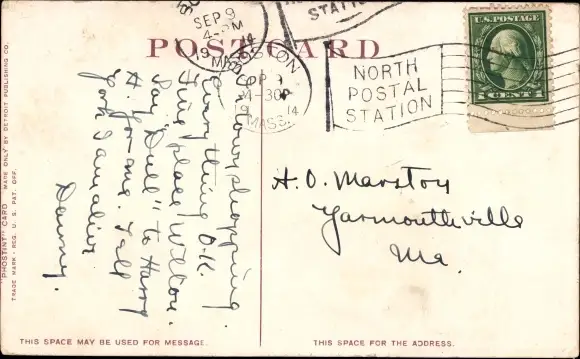 SEP 9
4-PM
19 14
MASS.
STATION
POST CARD
BOSTON
SEP 9
4-30P
19 14
MASS.
NORTH
POSTAL
STATION
U.S. POSTAGE
1 CENT 1
shopping.
Everything O.K.
place
Say "Dull" to Harry
H. for me. Tell
Danny.
H. O. Marston
Yarmouthville
Me.
"PHOSTINT" CARD MADE ONLY BY DETROIT PUBLISHING CO.
TRADE MARK - REG. U. S. PAT. OFF.
THIS SPACE MAY BE USED FOR MESSAGE.
THIS SPACE FOR THE ADDRESS.